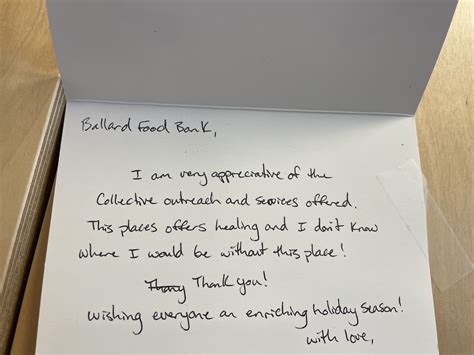 Ballard Food Bank,
I am very appreciative of the
Collective outreach and services offered.
This places offers healing and I don't know
where I would be without this place!
Thany Thank you!
wishing everyone an enriching holiday season!
with love,